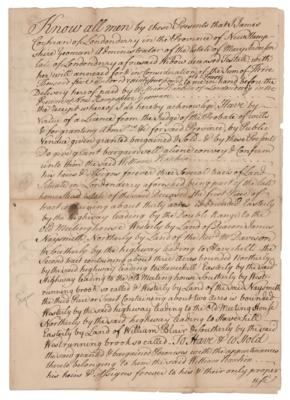 Know all men by these Presents that I James
Cochran of Londonderry in the Province of New Hamp
shire Yeoman Administrator of the Estate of Mary
late of Londonderry aforesaid Widow deceased Testate with
her will annexed for & in consideration of the Sum of three
Delivery hereof paid by William Rankin of Londonderry in the
the receipt whereof I do hereby acknowledge Have by
Virtue of a Licence from the Judge of the Probate of wills
& for granting adms &c for said Province, at Publick
Vendue given granted bargained & sold & by these Presents
Do give grant bargain sell aliene convey & Confirm
unto him the said William Rankin
his heirs & assigns forever three several tracts of Land
Situate in Londonderry aforesaid being part of the late
homestead of the said deceased the first Piece or
tract containing about thirty acres is bounded Easterly
by the highway leading by the Double Range to the
Old Meetinghouse Westerly by Land of Deacon James
Naysmith Northerly by Land of
& Southerly by the highway leading to Haverhill The
Second tract containing about three acres bounded Northerly
by the said highway leading to Haverhill Easterly by the said
Highway leading to the Old Meetinghouse Southerly by West
running brook so called & Westerly by Land of the said Naysmith
the third Piece or Tract Containing about two acres is bounded
Westerly by the said highway leading to the Old Meeting House
Northerly by the said highway leading to Haverhill
Easterly by Land of William Blair & Southerly by the said
Westrunning brook so called To Have & to Hold
the said granted & bargained Premises with the appurtenances
thereto belonging to him the said William Rankin
his heirs & assigns forever to his & their only proper
use